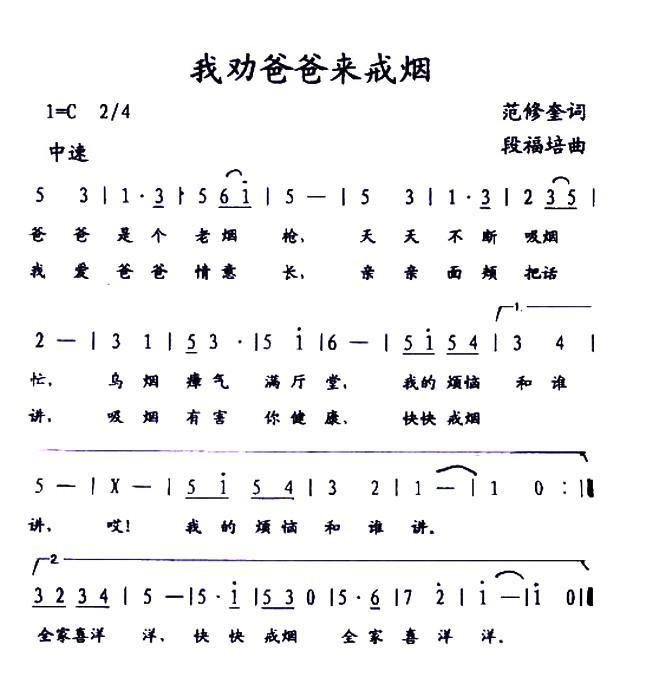 我劝爸爸来戒烟
1=C 2/4
范修奎词
中速
段福培曲
5 3 | 1 · 3 | 5 6 i | 5 — | 5 3 | 1 · 3 | 2 3 5 |
爸 爸 是 个 老 烟 枪, 天 天 不 断 吸烟
我 爱 爸 爸 情 意 长, 亲 亲 面 颊 把话
1.
2 — | 3 1 | 5 3 · | 5 i | 6 — | 5 i 5 4 | 3 4 |
忙, 乌 烟 瘴 气 满 厅 堂, 我的 烦恼 和 谁
讲, 吸 烟 有 害 你 健 康, 快快 戒烟
5 — | X — | 5 i 5 4 | 3 2 | 1 — | 1 0 :|
讲, 哎! 我 的 烦 恼 和 谁 讲。
2.
3 2 3 4 | 5 — | 5 · i | 5 3 0 | 5 · 6 | 7 2 | i — | i 0 |
全家喜洋 洋, 快 快 戒烟 全 家 喜 洋 洋。